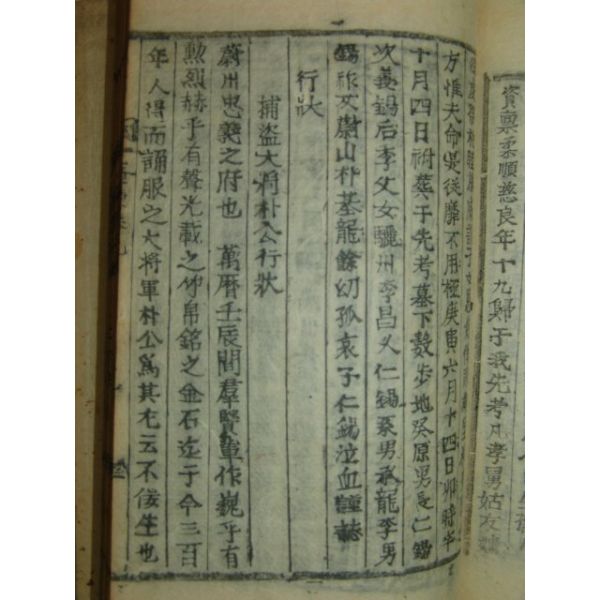 資稟柔順慈良年十九歸于我先考凡孝舅姑友
方惟夫命是從靡不用極庚寅六月十四日卯時卒
十月四日祔葬于先考墓下數步地癸原男長仁錫
次義錫后李父女驪州李昌久仁錫系男承龍李男
錫祚文蔚山朴基龍餘幼孤哀子仁錫泣血謹誌
行狀
捕盜大將朴公行狀
蔚州忠義之府也 萬曆壬辰間羣賢輩作巍乎有
勲烈赫乎有聲光載之竹帛銘之金石迄于今三百
年人得而誦服之大將軍朴公爲其尤云不佞生也